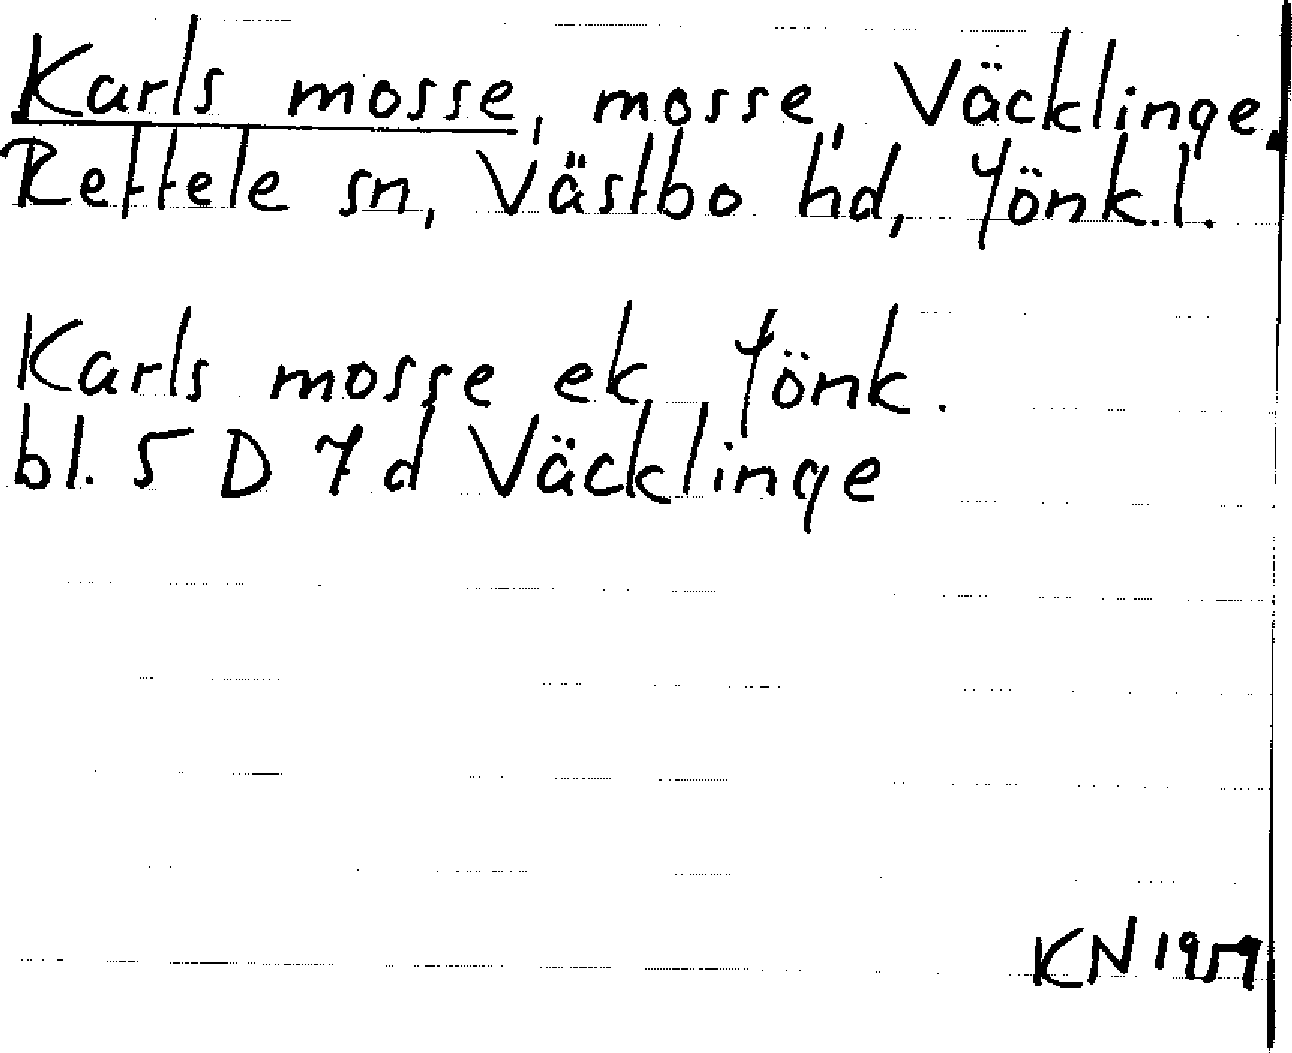 Karls mosse, mosse, Väcklinge,
Reftele sn, Västbo hd, Jönk.l.
Karls mosse ek Jönk.
bl. 5 D 7d Väcklinge
KN 1959